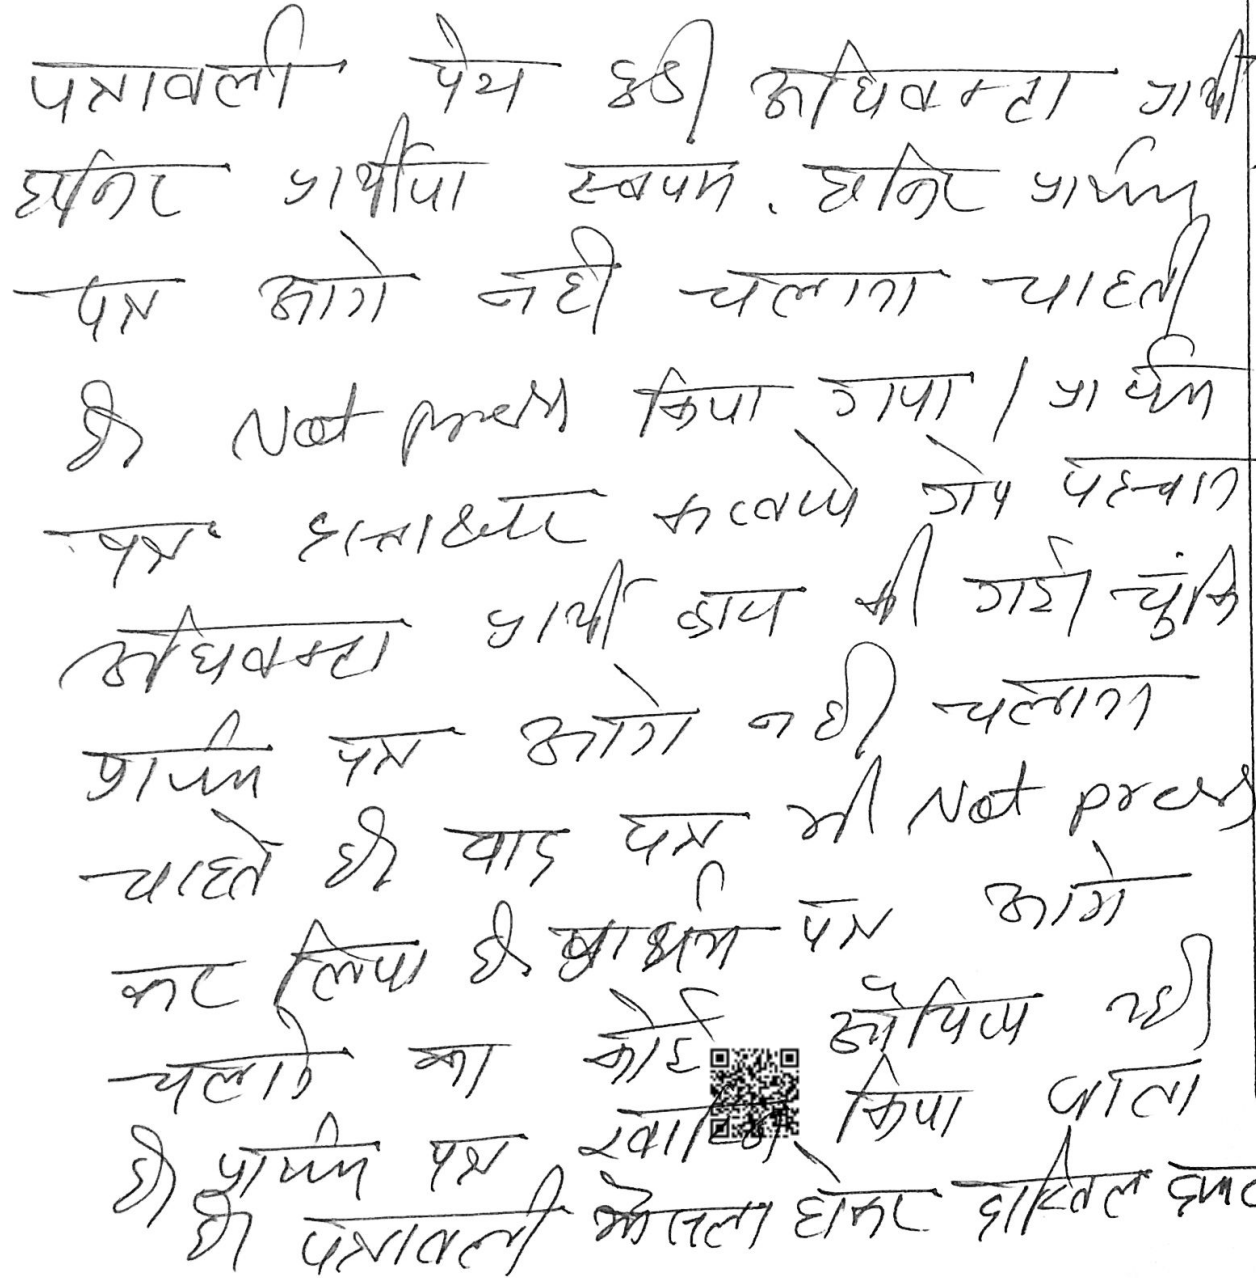 पत्रावली पेश हुई अधिवक्ता प्रार्थी
हाजिर प्रार्थीया स्वयम हाजिर प्रार्थना
पत्र आगे नही चलाना चाहती
है Not press किया गया । प्रार्थना
पत्र हस्ताक्षर करवाये गये पहचान
अधिवक्ता प्रार्थी द्वारा की गई। चुंकि
प्रार्थना पत्र आगे नही चलाना
चाहते है वाद पत्र भी Not press
कर लिया है प्रार्थना पत्र आगे
चलाने का कोई औचित्य नही
है प्रार्थना पत्र किया जाता
है पत्रावली फैसला होकर दाखिल दफ्तर